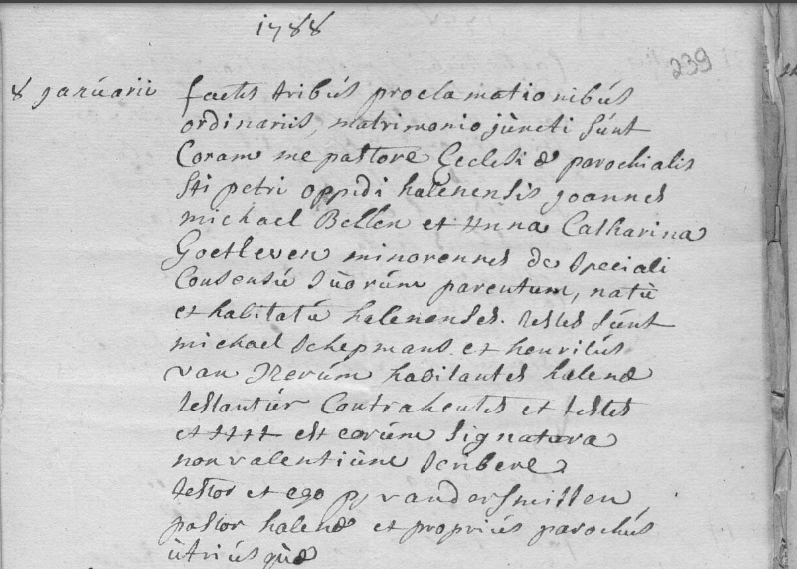 1788
239
8 januarii factis tribus proclamationibus
ordinariis, matrimonio juncti sunt
Coram me pastore Ecclesiæ parochialis
Sti petri oppidi halenensis joannes
michael Bellen et Anna Catharina
Goetleven minorennes de speciali
Consensu suorum parentum, natu
et habitatu halenenses. testes sunt
michael schepmans et henricus
van Nerum habitantes halenæ
testantur Contrahentes et testes
et ++++ est eorum signatura
non valentium scribere
testor et ego pj vandersmissen
pastor halenæ et proprius parochus
utriusque